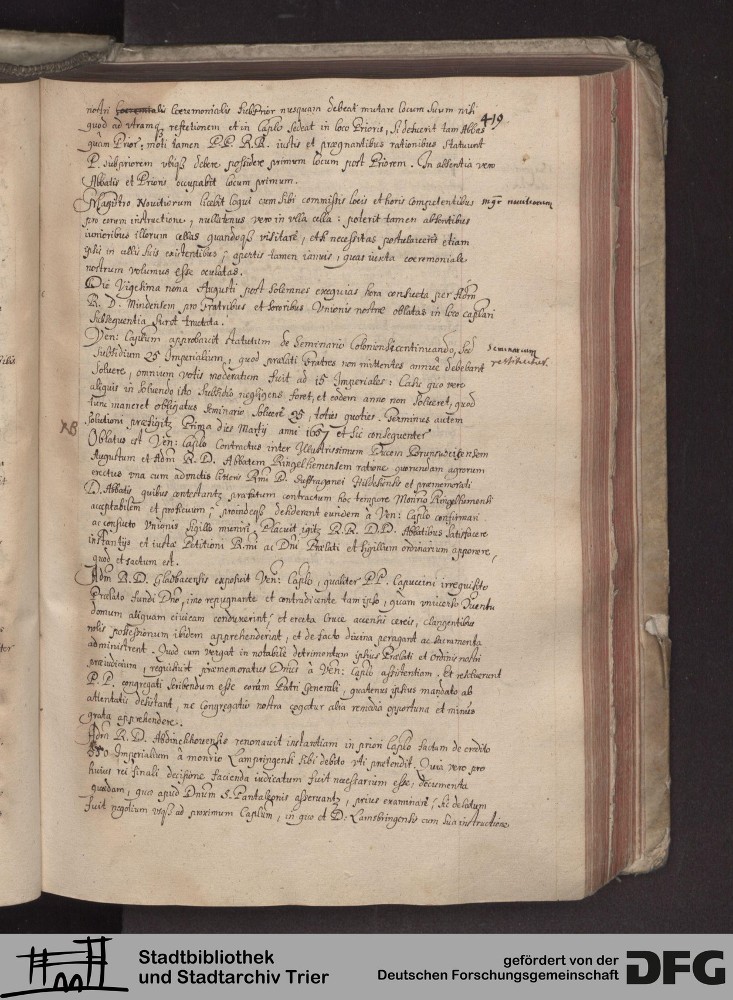 419
nostri Coeremonialis SubPrior nusquam debeat mutare locum suum nisi
quod ad utramq refectionem et in Caplo sedeat in loco Prioris, si defuerit tam Abbas
quam Prior; moti tamen P.P. R.R. iustis et praegnantibus rationibus statuunt
P. subpriorem ubiq debere possidere primum locum post Priorem. In absentia vero
Abbatis et Prioris occupabit locum primum.
Magistro Novitiorum licebit loqui cum sibi commissis locis et horis competentibus
mgr novitiorum
pro eorum instructione, nullatenus vero in ulla cella: poterit tamen absentibus
iunioribus illorum cellas quandoq visitare, et si necessitas postulaverit etiam
ipsis in cellis suis existentibus, apertis tamen ianuis, quas iuxta coeremoniale
nostrum volumus esse oculatas.
Die Vigesima nona Augusti post solemnes exequias hora consueta per Adm
R. D. Mindensem pro Fratribus et Sororibus Unionis nostrae oblatas in loco caplari
subsequentia sunt tractata.
Ven: Caplum approbavit statutum de Seminario Coloniensi continuando, sed
Seminarium
subsidium 25 Imperialium, quod praelati Fratres non mittentes annue debebant
restitutus.
solvere, omnium votis moderatum fuit ad 15 Imperiales: Casu quo vero
aliquis in solvendo isto subsidio negligens foret, et eodem anno non solveret, quod
tunc maneret obligatus seminario, solvere 25, toties quoties. Terminus autem
solutioni praefigitz Prima dies Martij anni 1657 et sic consequenter
NB
Oblatus est Ven: Caplo Contractus inter Illustrissimum Ducem Brunswicensem
Augustum et Adm R. D. Abbatem Ringelhemensem ratione quorundam agrorum
erectus una cum adiunctis literis Rmi D. Suffraganei Hildesiensis et praememorati
D. Abbatis quibus contestantz praefatum contractum hoc tempore Monrio Ringelhemensi
acceptabilem et proficuum, proindeq desiderant eundem à Ven: Caplo confirmari
ac consueto Unionis sigillo muniri, Placuit igitz R.R. D.D. Abbatibus satisfacere
instantijs et iustae Petitioni R.mi ac Dni Praelati et sigillum ordinarium apponere,
quod et factum est.
Adm R.D. Gladbacensis exposuit Ven: Caplo, qualiter P.P. Capucini irrequisito
Praelato fundi Dno, imo repugnante et contradicente tam ipso, quam universo Conventu
domum aliquam civicam conduxerint, et erecta Cruce accensis cereis, clangentibus
nolis possessionum ibidem apprehenderint, et de facto divina peragant ac sacramenta
administrent. Quod cum vergat in notabile detrimentum ipsius Praelati et Ordinis nostri
praeiudicium, requisivit praememoratus Dnus à Ven: Caplo assistentiam, et resolverunt
P.P. congregati scribendum esse eorum Patri Generali, quatenus ipsius mandato ab
attentatis desistant, ne Congregatio nostra cogetur alia remedia opportuna et minus
grata apprehendere.
Adm R.D. Abdinckhovensis renovavit instantiam in priori Caplo factam de credito
Imperialium à monrio Lampringensi sibi debito uti praetendit. Quia vero pro
huius rei finali decisione facienda iudicatum fuit necessarium esse, documenta
quaedam, quae apud Dnum S. Pantaleonis asservantz, prius examinari, sic delatum
fuit negotium usq ad proximum Caplum, in quo et D. Lamsbringensis cum sua instructione
Stadtbibliothek
und Stadtarchiv Trier
gefördert von der
Deutschen Forschungsgemeinschaft
DFG